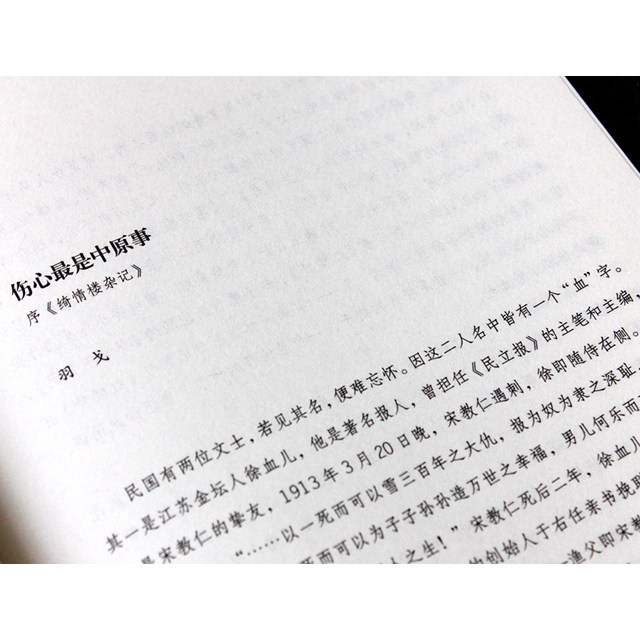 伤心最是中原事
序《绮情楼杂记》
羽 戈
民国有两位文士，若见其名，便难忘怀。因这二人名中皆有一个“血”字。
其一是江苏金坛人徐血儿，他是著名报人，曾担任《民立报》的主笔和主编，
是宋教仁的挚友，1913年3月20日晚，宋教仁遇刺，徐即随侍在侧。
“……以一死而可以雪三百年之大仇，报为奴为隶之深耻，
死而可以为子子孙孙造万世之幸福，男儿何乐而
人之生！”宋教仁死后二年，徐血儿
创始人于右任亲书挽联
渔父即宋教